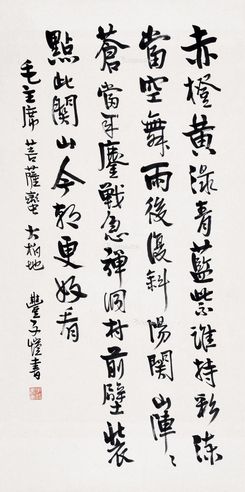 赤橙黃綠青藍紫誰持彩練
當空舞雨後復斜陽關山陣々
蒼當年鏖戰急彈洞村前壁裝
點此關山今朝更好看
毛主席 菩薩蠻 大柏地 豐子愷書